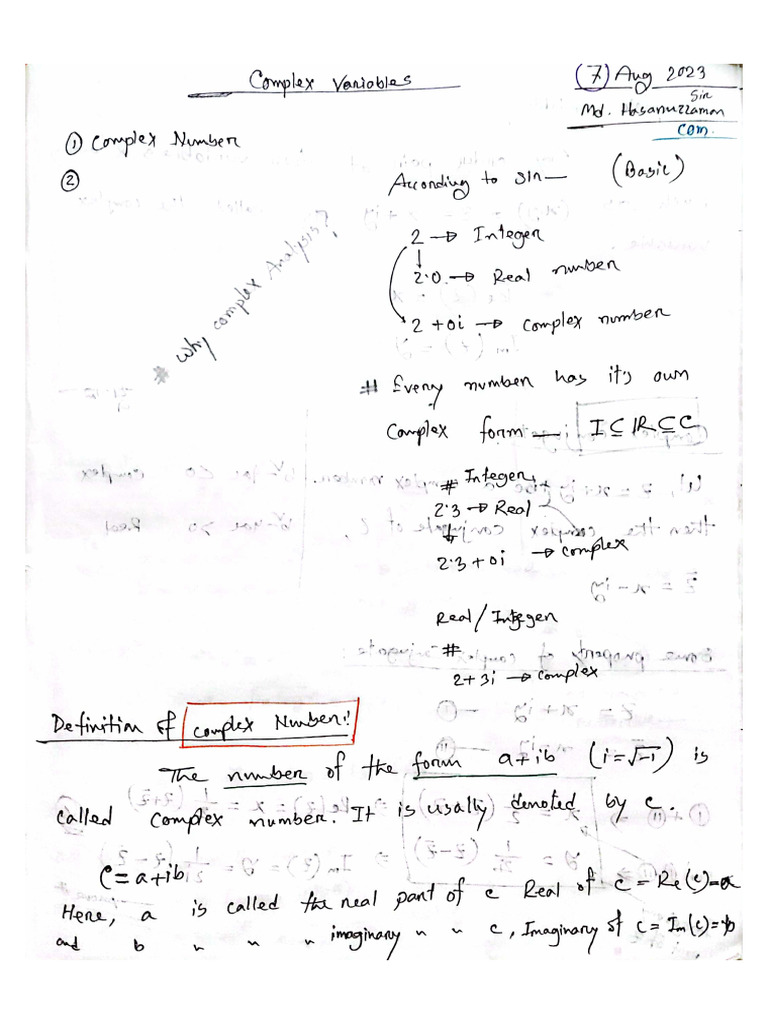 Complex Variables
(7) Aug 2023
Md. Hasanuzzaman Sir
com.
① Complex Number
②
According to Sir — (Basic)
# Why complex Analysis?
2 → Integer
2.0 → Real number
2 + 0i → complex number
# Every number has it's own
complex form — I ⊆ IR ⊆ C
# Integer,
2.3 → Real
↓
2.3 + 0i → complex
Real / Integer
#
2 + 3i → complex
Definition of complex Number:
The number of the form a + ib (i = √-1) is
called complex number. It is usally denoted by c.
C = a + ib
Here, a is called the real part of c Real of c = Re(c) = a
and b " " " imaginary " " c, Imaginary of c = Im(c) = b